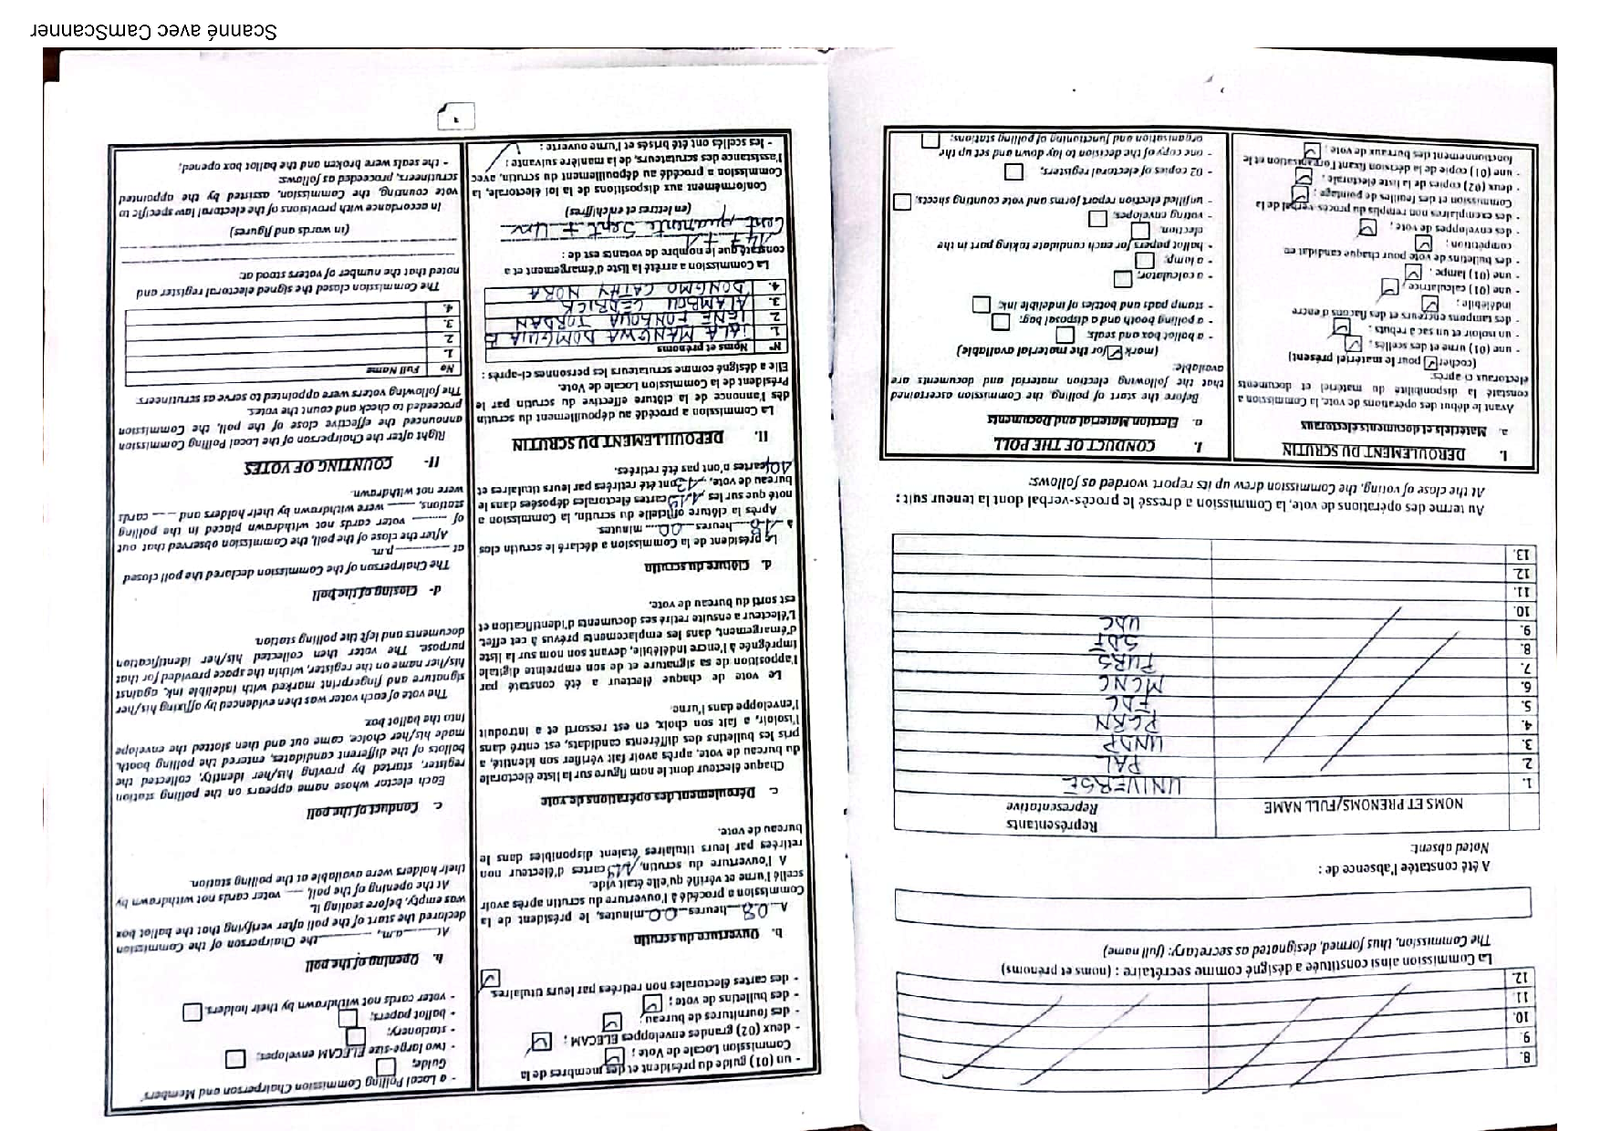 8.
9.
10.
11.
12.
La Commission ainsi constituée a désigné comme secrétaire : (noms et prénoms)
The Commission, thus formed, designated as secretary: (full name)
A été constatée l'absence de :
Noted absent:
NOMS ET PRENOMS/FULL NAME
Représentants
Representative
1. UNIVERSE
2. PAL
3. UNDP
4. PCRN
5. FDC
6. MCNC
7. PURS
8. SDF
9. UDC
10.
11.
12.
13.
Au terme des opérations de vote, la Commission a dressé le procès-verbal dont la teneur suit :
At the close of voting, the Commission drew up its report worded as follows:
I. DEROULEMENT DU SCRUTIN
a. Matériels et documents électoraux
Avant le début des opérations de vote, la Commission a
constaté la disponibilité du matériel et documents
électoraux ci après:
(cocher pour le matériel présent)
- une (01) urne et des scellés ;
- un isoloir et un sac à rebuts ;
- des tampons encreurs et des flacons d'encre
indélébile ;
- une (01) calculatrice ;
- une (01) lampe ;
- des bulletins de vote pour chaque candidat en
compétition ;
- des enveloppes de vote ;
- des exemplaires non remplis du procès-verbal de la
Commission et des feuilles de pointage ;
- deux (02) copies de la liste électorale ;
- une (01) copie de la décision fixant l'organisation et le
fonctionnement des bureaux de vote ;
I. CONDUCT OF THE POLL
a. Election Material and Documents
Before the start of polling, the Commission ascertained
that the following election material and documents are
available:
(mark for the material available)
- a ballot box and seals;
- a polling booth and a disposal bag;
- stamp pads and bottles of indelible ink;
- a calculator;
- a lamp;
- ballot papers for each candidate taking part in the
election;
- voting envelopes;
- unfilled election report forms and vote counting sheets;
- 02 copies of electoral registers;
- one copy of the decision to lay down and set up the
organisation and functioning of polling stations;
- un (01) guide du président et des membres de la
Commission Locale de Vote ;
- deux (02) grandes enveloppes ELECAM ;
- des fournitures de bureau ;
- des bulletins de vote ;
- des cartes électorales non retirées par leurs titulaires.
b. Ouverture du scrutin
A 08 heures 00 minutes, le président de la
Commission a procédé à l'ouverture du scrutin après avoir
scellé l'urne et vérifié qu'elle était vide.
A l'ouverture du scrutin, cartes d'électeur non
retirées par leurs titulaires étaient disponibles dans le
bureau de vote.
c. Déroulement des opérations de vote
Chaque électeur dont le nom figure sur la liste électorale
du bureau de vote, après avoir fait vérifier son identité, a
pris les bulletins des différents candidats, est entré dans
l'isoloir, a fait son choix, en est ressorti et a introduit
l'enveloppe dans l'urne.
Le vote de chaque électeur a été constaté par
l'apposition de sa signature et de son empreinte digitale
imprégnée à l'encre indélébile, devant son nom sur la liste
d'émargement, dans les emplacements prévus à cet effet.
L'électeur a ensuite retiré ses documents d'identification et
est sorti du bureau de vote.
d. Clôture du scrutin
Le président de la Commission a déclaré le scrutin clos
à 18 heures 00 minutes.
Après la clôture officielle du scrutin, la Commission a
noté que sur les cartes électorales déposées dans le
bureau de vote, ont été retirées par leurs titulaires et
cartes n'ont pas été retirées.
II. DEPOUILLEMENT DU SCRUTIN
La Commission a procédé au dépouillement du scrutin
dès l'annonce de la clôture effective du scrutin par le
Président de la Commission Locale de Vote.
Elle a désigné comme scrutateurs les personnes ci-après :
N° Noms et prénoms
1. MANGWA DOMGUIA
2. FONGOUA JORDAN
3. ALAMBOU CEDRICK
4. DONGMO CATHY NORA
La Commission a arrêté la liste d'émargement et a
constaté que le nombre de votants est de :
147 + 1
Cent quarante Sept + Un
(en lettres et en chiffres)
Conformément aux dispositions de la loi électorale, la
Commission a procédé au dépouillement du scrutin, avec
l'assistance des scrutateurs, de la manière suivante :
- les scellés ont été brisés et l'urne ouverte :
- a Local Polling Commission Chairperson and Members'
Guide;
- two large-size ELECAM envelopes;
- stationery;
- ballot papers;
- voter cards not withdrawn by their holders.
b. Opening of the poll
At a.m., the Chairperson of the Commission
declared the start of the poll after verifying that the ballot box
was empty, before sealing it.
At the opening of the poll, voter cards not withdrawn by
their holders were available at the polling station.
c. Conduct of the poll
Each elector whose name appears on the polling station
register, started by proving his/her identity, collected the
ballots of the different candidates, entered the polling booth,
made his/her choice, came out and then slotted the envelope
into the ballot box.
The vote of each voter was then evidenced by affixing his/her
signature and fingerprint marked with indelible ink, against
his/her name on the register, within the space provided for that
purpose. The voter then collected his/her identification
documents and left the polling station.
d- Closing of the poll
The Chairperson of the Commission declared the poll closed
at p.m.
After the close of the poll, the Commission observed that out
of voter cards not withdrawn placed in the polling
stations, were withdrawn by their holders and cards
were not withdrawn.
II- COUNTING OF VOTES
Right after the Chairperson of the Local Polling Commission
announced the effective close of the poll, the Commission
proceeded to check and count the votes.
The following voters were appointed to serve as scrutineers:
No Full Name
1.
2.
3.
4.
The Commission closed the signed electoral register and
noted that the number of voters stood at:
(in words and figures)
In accordance with provisions of the electoral law specific to
vote counting, the Commission, assisted by the appointed
scrutineers, proceeded as follows:
- the seals were broken and the ballot box opened;
Scanné avec CamScanner